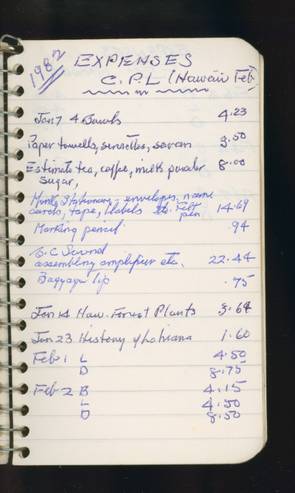 1982
EXPENSES
C.P.L (Hawaii Feb.
Jan 7 4 Bowls 4.23
Paper towells, serviettes, saran 3.50
Estimate tea, coffee, milk powder 8.00
sugar,
Mtng Stationery - envelopes, name
cards, tape, labels etc. Felt pen 14.69
Marking pencil .94
B.C Sound
assembling amplifier etc. 22.44
Baggage tip .75
Jan 14 Haw. Forest Plants 3.64
Jan 23 History of Lahaina 1.60
Feb 1 L 4.50
D 8.75
Feb 2 B 4.15
L 4.50
D 8.50